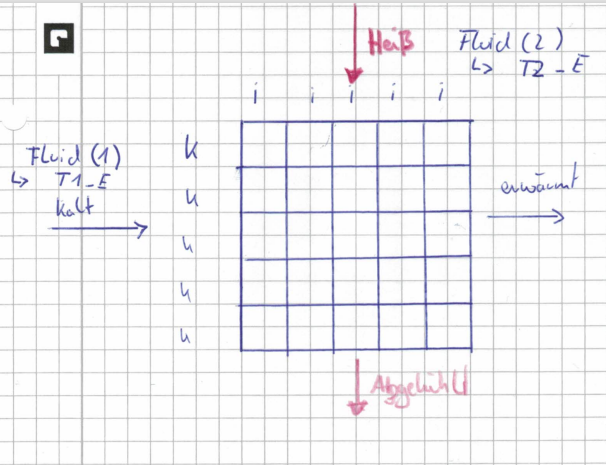 Heiß
Fluid (2)
↳ T2_E
i i i i i
Fluid (1)
↳ T1_E
kalt
k
k
k
k
k
erwärmt
Abgekühlt